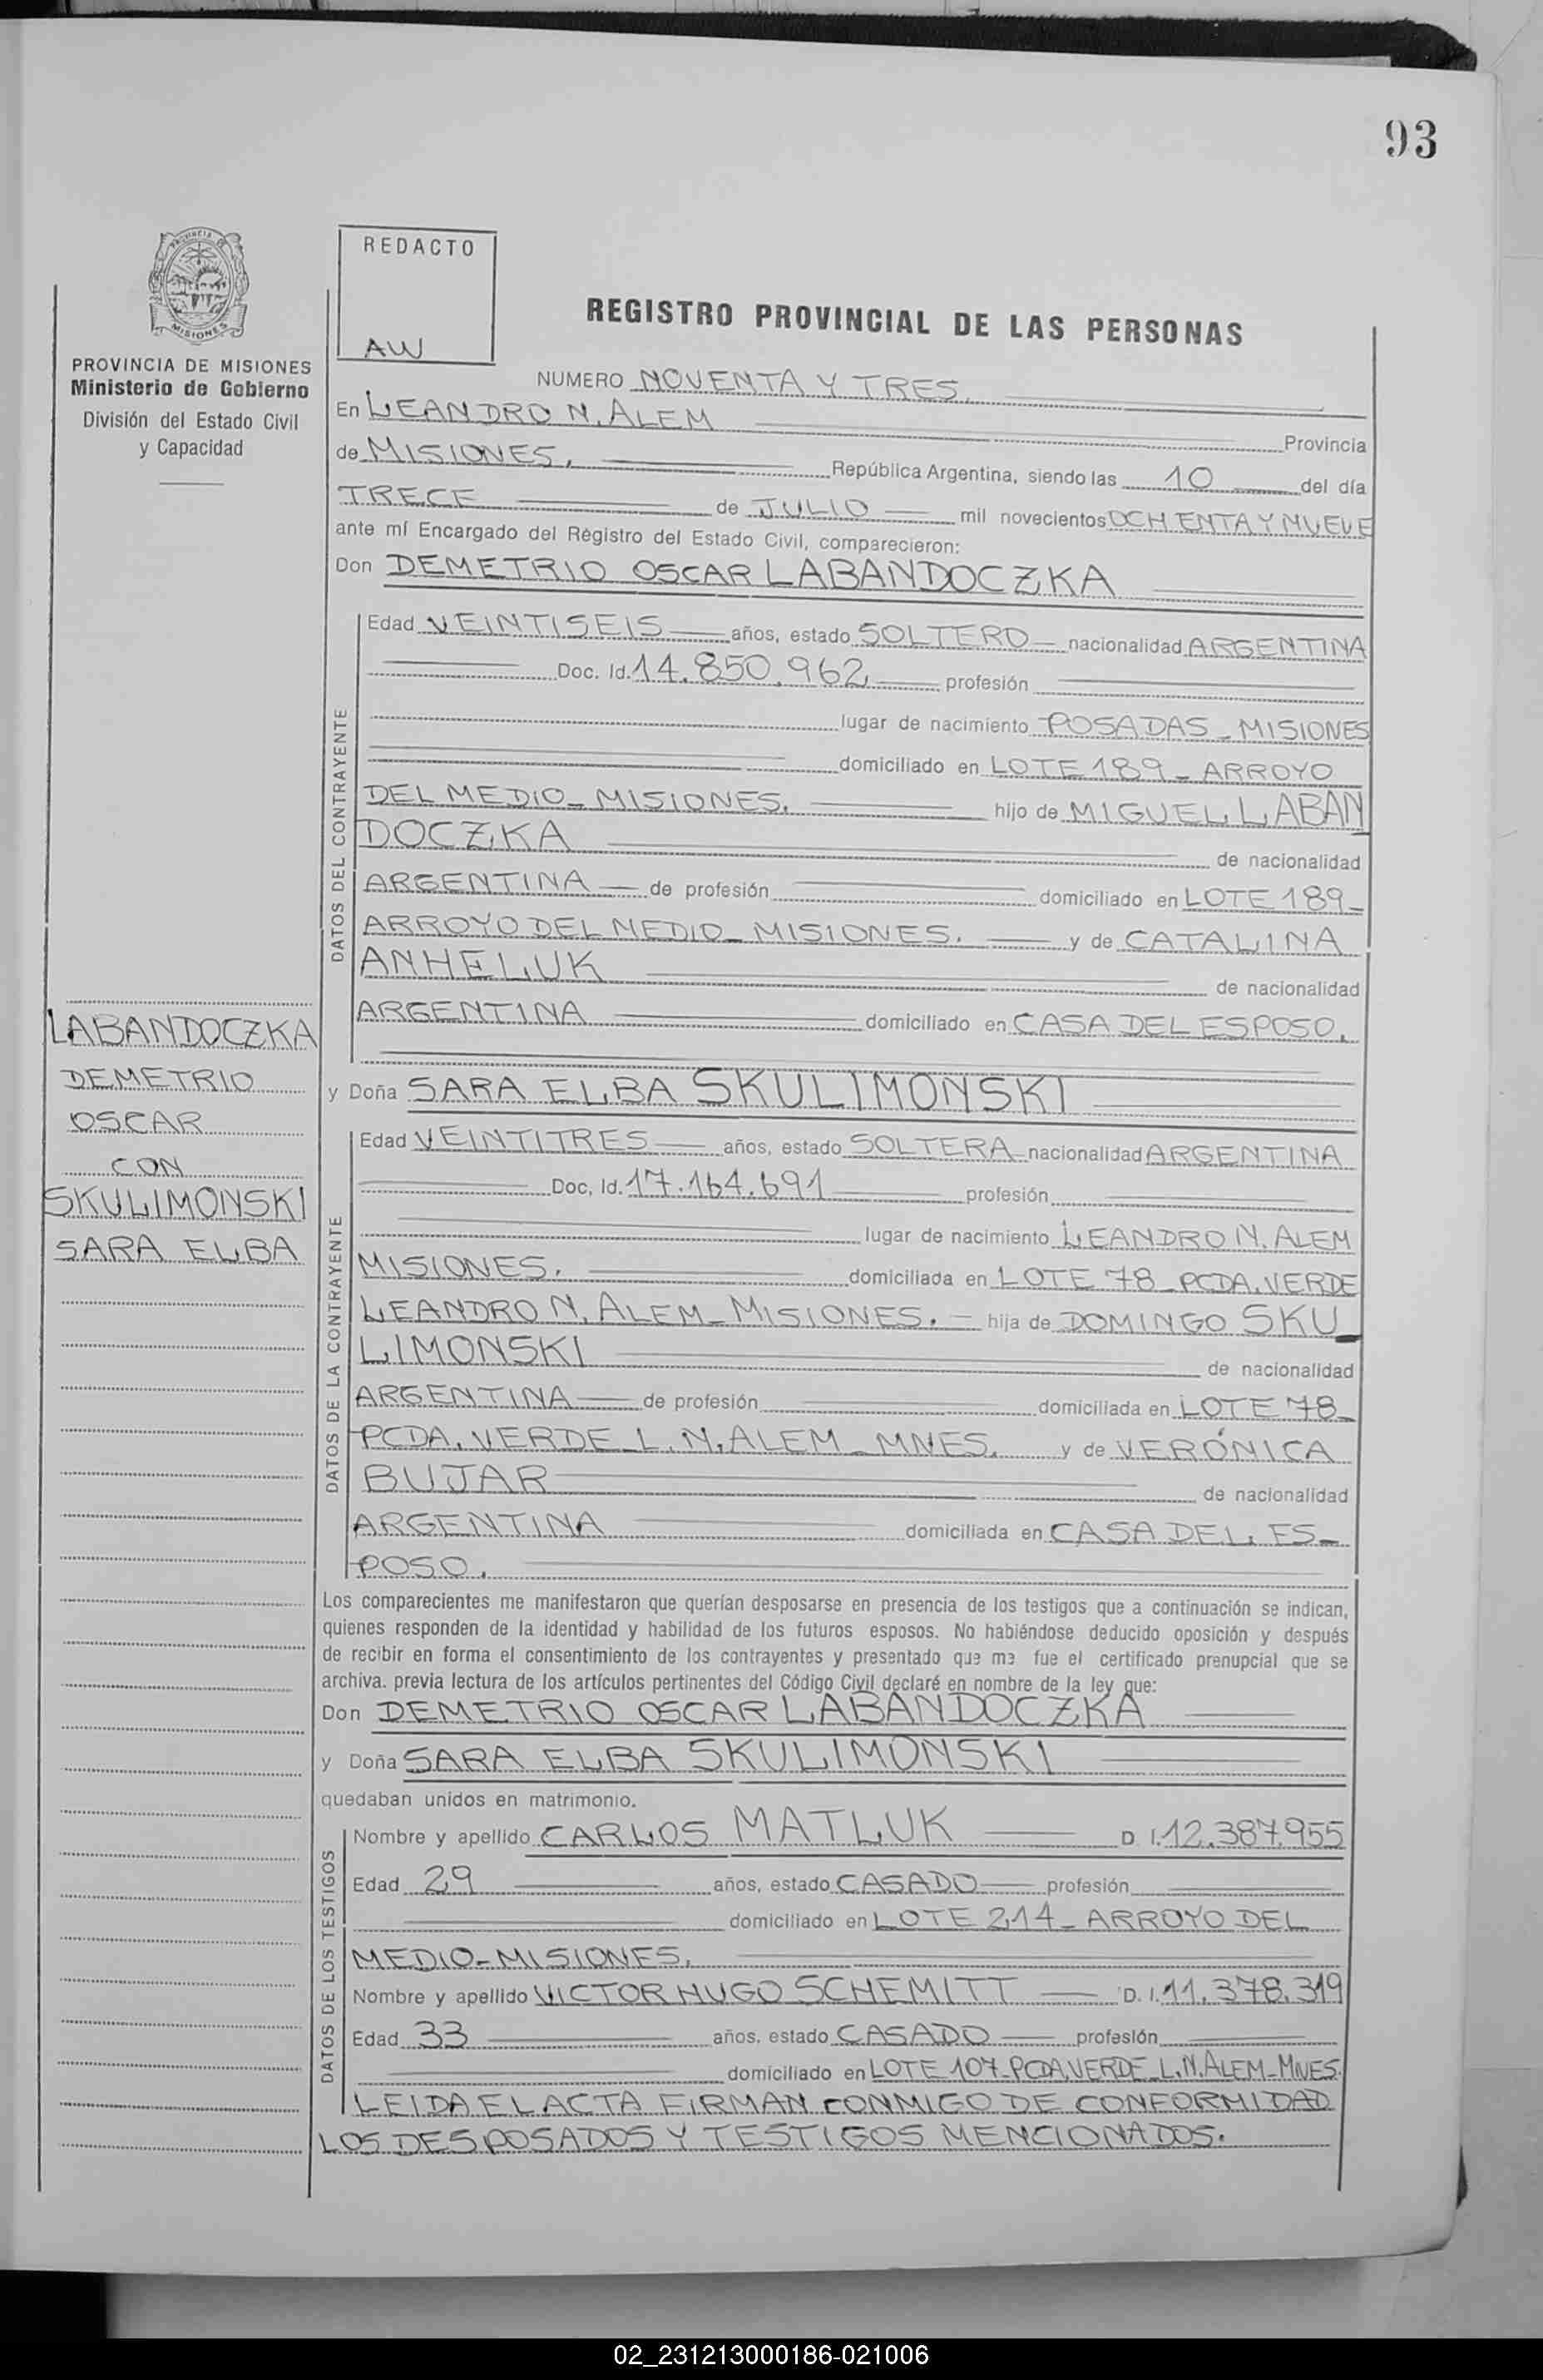 93
PROVINCIA DE MISIONES
PROVINCIA DE MISIONES
Ministerio de Gobierno
División del Estado Civil
y Capacidad
REDACTO
AW
REGISTRO PROVINCIAL DE LAS PERSONAS
NUMERO NOVENTA Y TRES.
En LEANDRO N. ALEM Provincia
de MISIONES. República Argentina, siendo las 10 del día
TRECE de JULIO mil novecientos OCHENTA Y NUEVE
ante mí Encargado del Registro del Estado Civil, comparecieron:
Don DEMETRIO OSCAR LABANDOCZKA
DATOS DEL CONTRAYENTE
Edad VEINTISEIS años, estado SOLTERO nacionalidad ARGENTINA
Doc. Id. 14.850.962 profesión
lugar de nacimiento POSADAS - MISIONES
domiciliado en LOTE 189 - ARROYO
DEL MEDIO - MISIONES. hijo de MIGUEL LABAN
DOCZKA de nacionalidad
ARGENTINA de profesión domiciliado en LOTE 189 -
ARROYO DEL MEDIO - MISIONES. y de CATALINA
ANHELUK de nacionalidad
ARGENTINA domiciliado en CASA DEL ESPOSO.
LABANDOCZKA
DEMETRIO
OSCAR
CON
SKULIMONSKI
SARA ELBA
y Doña SARA ELBA SKULIMONSKI
DATOS DE LA CONTRAYENTE
Edad VEINTITRES años, estado SOLTERA nacionalidad ARGENTINA
Doc, Id. 17.164.691 profesión
lugar de nacimiento LEANDRO N. ALEM
MISIONES. domiciliada en LOTE 78 - PCDA. VERDE
LEANDRO N. ALEM - MISIONES. - hija de DOMINGO SKU_
LIMONSKI de nacionalidad
ARGENTINA de profesión domiciliada en LOTE 78 -
PCDA. VERDE - L. N. ALEM - MNES. y de VERÓNICA
BUJAR de nacionalidad
ARGENTINA domiciliada en CASA DEL ES-
POSO.
Los comparecientes me manifestaron que querían desposarse en presencia de los testigos que a continuación se indican,
quienes responden de la identidad y habilidad de los futuros esposos. No habiéndose deducido oposición y después
de recibir en forma el consentimiento de los contrayentes y presentado que me fue el certificado prenupcial que se
archiva. previa lectura de los artículos pertinentes del Código Civil declaré en nombre de la ley que:
Don DEMETRIO OSCAR LABANDOCZKA
y Doña SARA ELBA SKULIMONSKI
quedaban unidos en matrimonio.
DATOS DE LOS TESTIGOS
Nombre y apellido CARLOS MATLUK D. I. 12.387.955
Edad 29 años, estado CASADO profesión
domiciliado en LOTE 214 - ARROYO DEL
MEDIO - MISIONES.
Nombre y apellido VICTOR HUGO SCHEMITT D. I. 11.378.319
Edad 33 años. estado CASADO profesión
domiciliado en LOTE 107 - PCDA. VERDE - L. N. ALEM - MNES.
LEIDA EL ACTA FIRMAN CONMIGO DE CONFORMIDAD
LOS DESPOSADOS Y TESTIGOS MENCIONADOS.
02_231213000186-021006